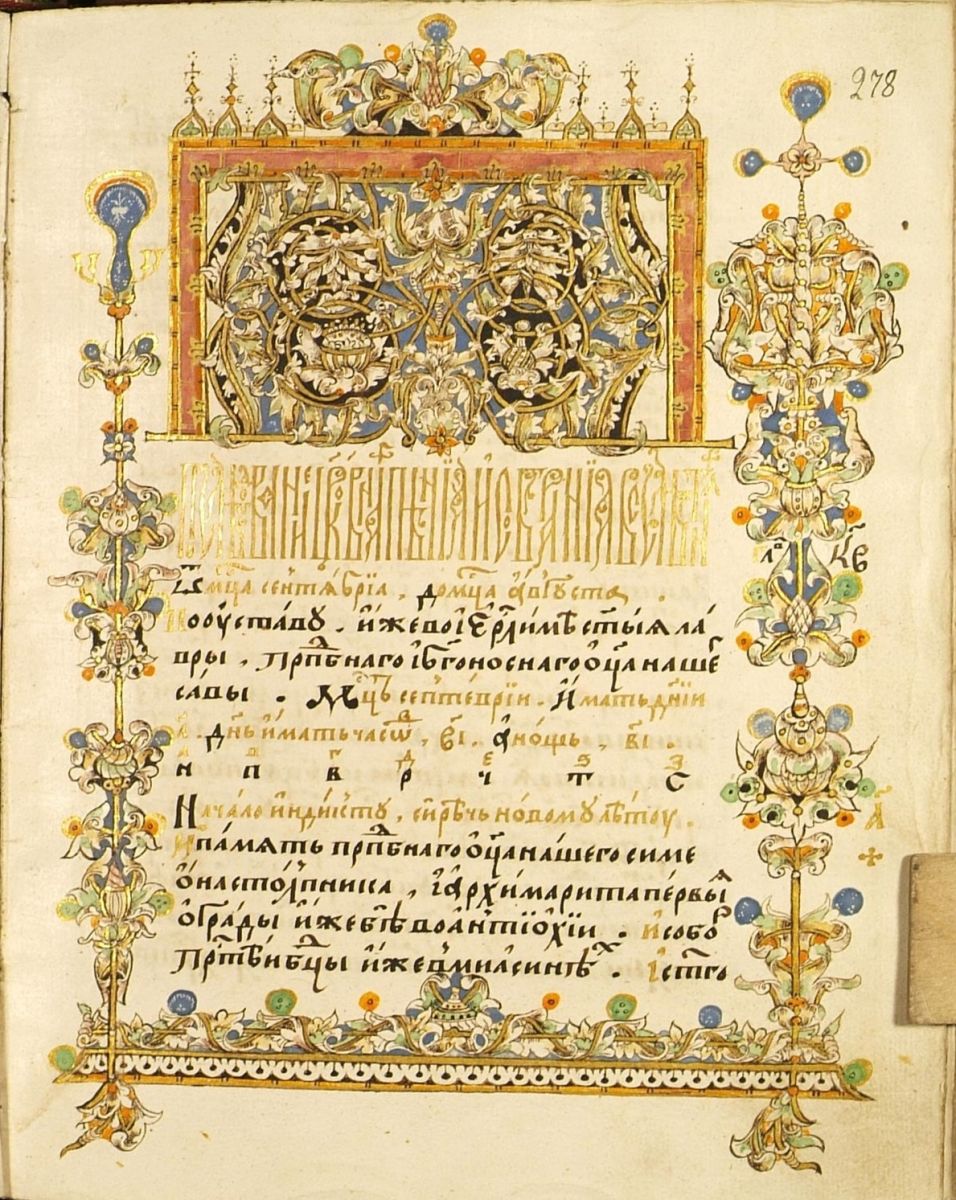 278
Ѿ мцⷭа сентѧ́брїа, до мцⷭа а҆́вгꙋста.
По оу҆ста́вꙋ, и҆́же во і҆ерⷭли́мѣ ст҃ы́ѧ ла́
вры, прпⷣбнаго и҆ бг҃оно́снаго ѻ҆ц҃а на́ше
са́вы. Мцⷭъ септе́врїи. И҆́мать дні́й
л҃. дн҃ь и҆́мать часѡ́въ, в҃і. а҆ но́щь, в҃і.
а в г д е ѕ з
н п в р ч т с
Нача́ло и҆ндикт́ꙋ, си́рѣчь но́вомꙋ лѣ́тоу.
И҆ па́мѧть прпⷣбнаго ѻ҆ц҃а на́шего симе
ѡ́на сто́лпника, и҆ а҆рхимари́та пе́рвыѧ
ѻ҆гра́ды и҆́же бѣ̀ во а҆нтїо́хїи. И҆ собо́р
прⷭт҃ѣ́й бц҃ы и҆́же в мїаси́нѣхъ. И҆ ст҃го